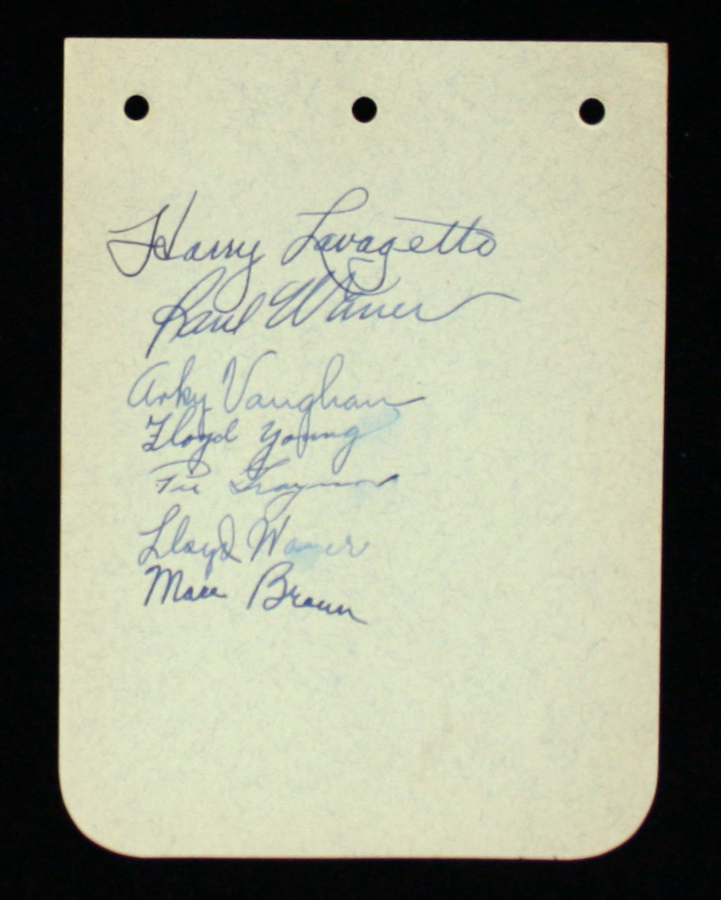 Harry Lavagetto
Paul Waner
Arky Vaughan
Floyd Young
Pie Traynor
Lloyd Waner
Mace Brown